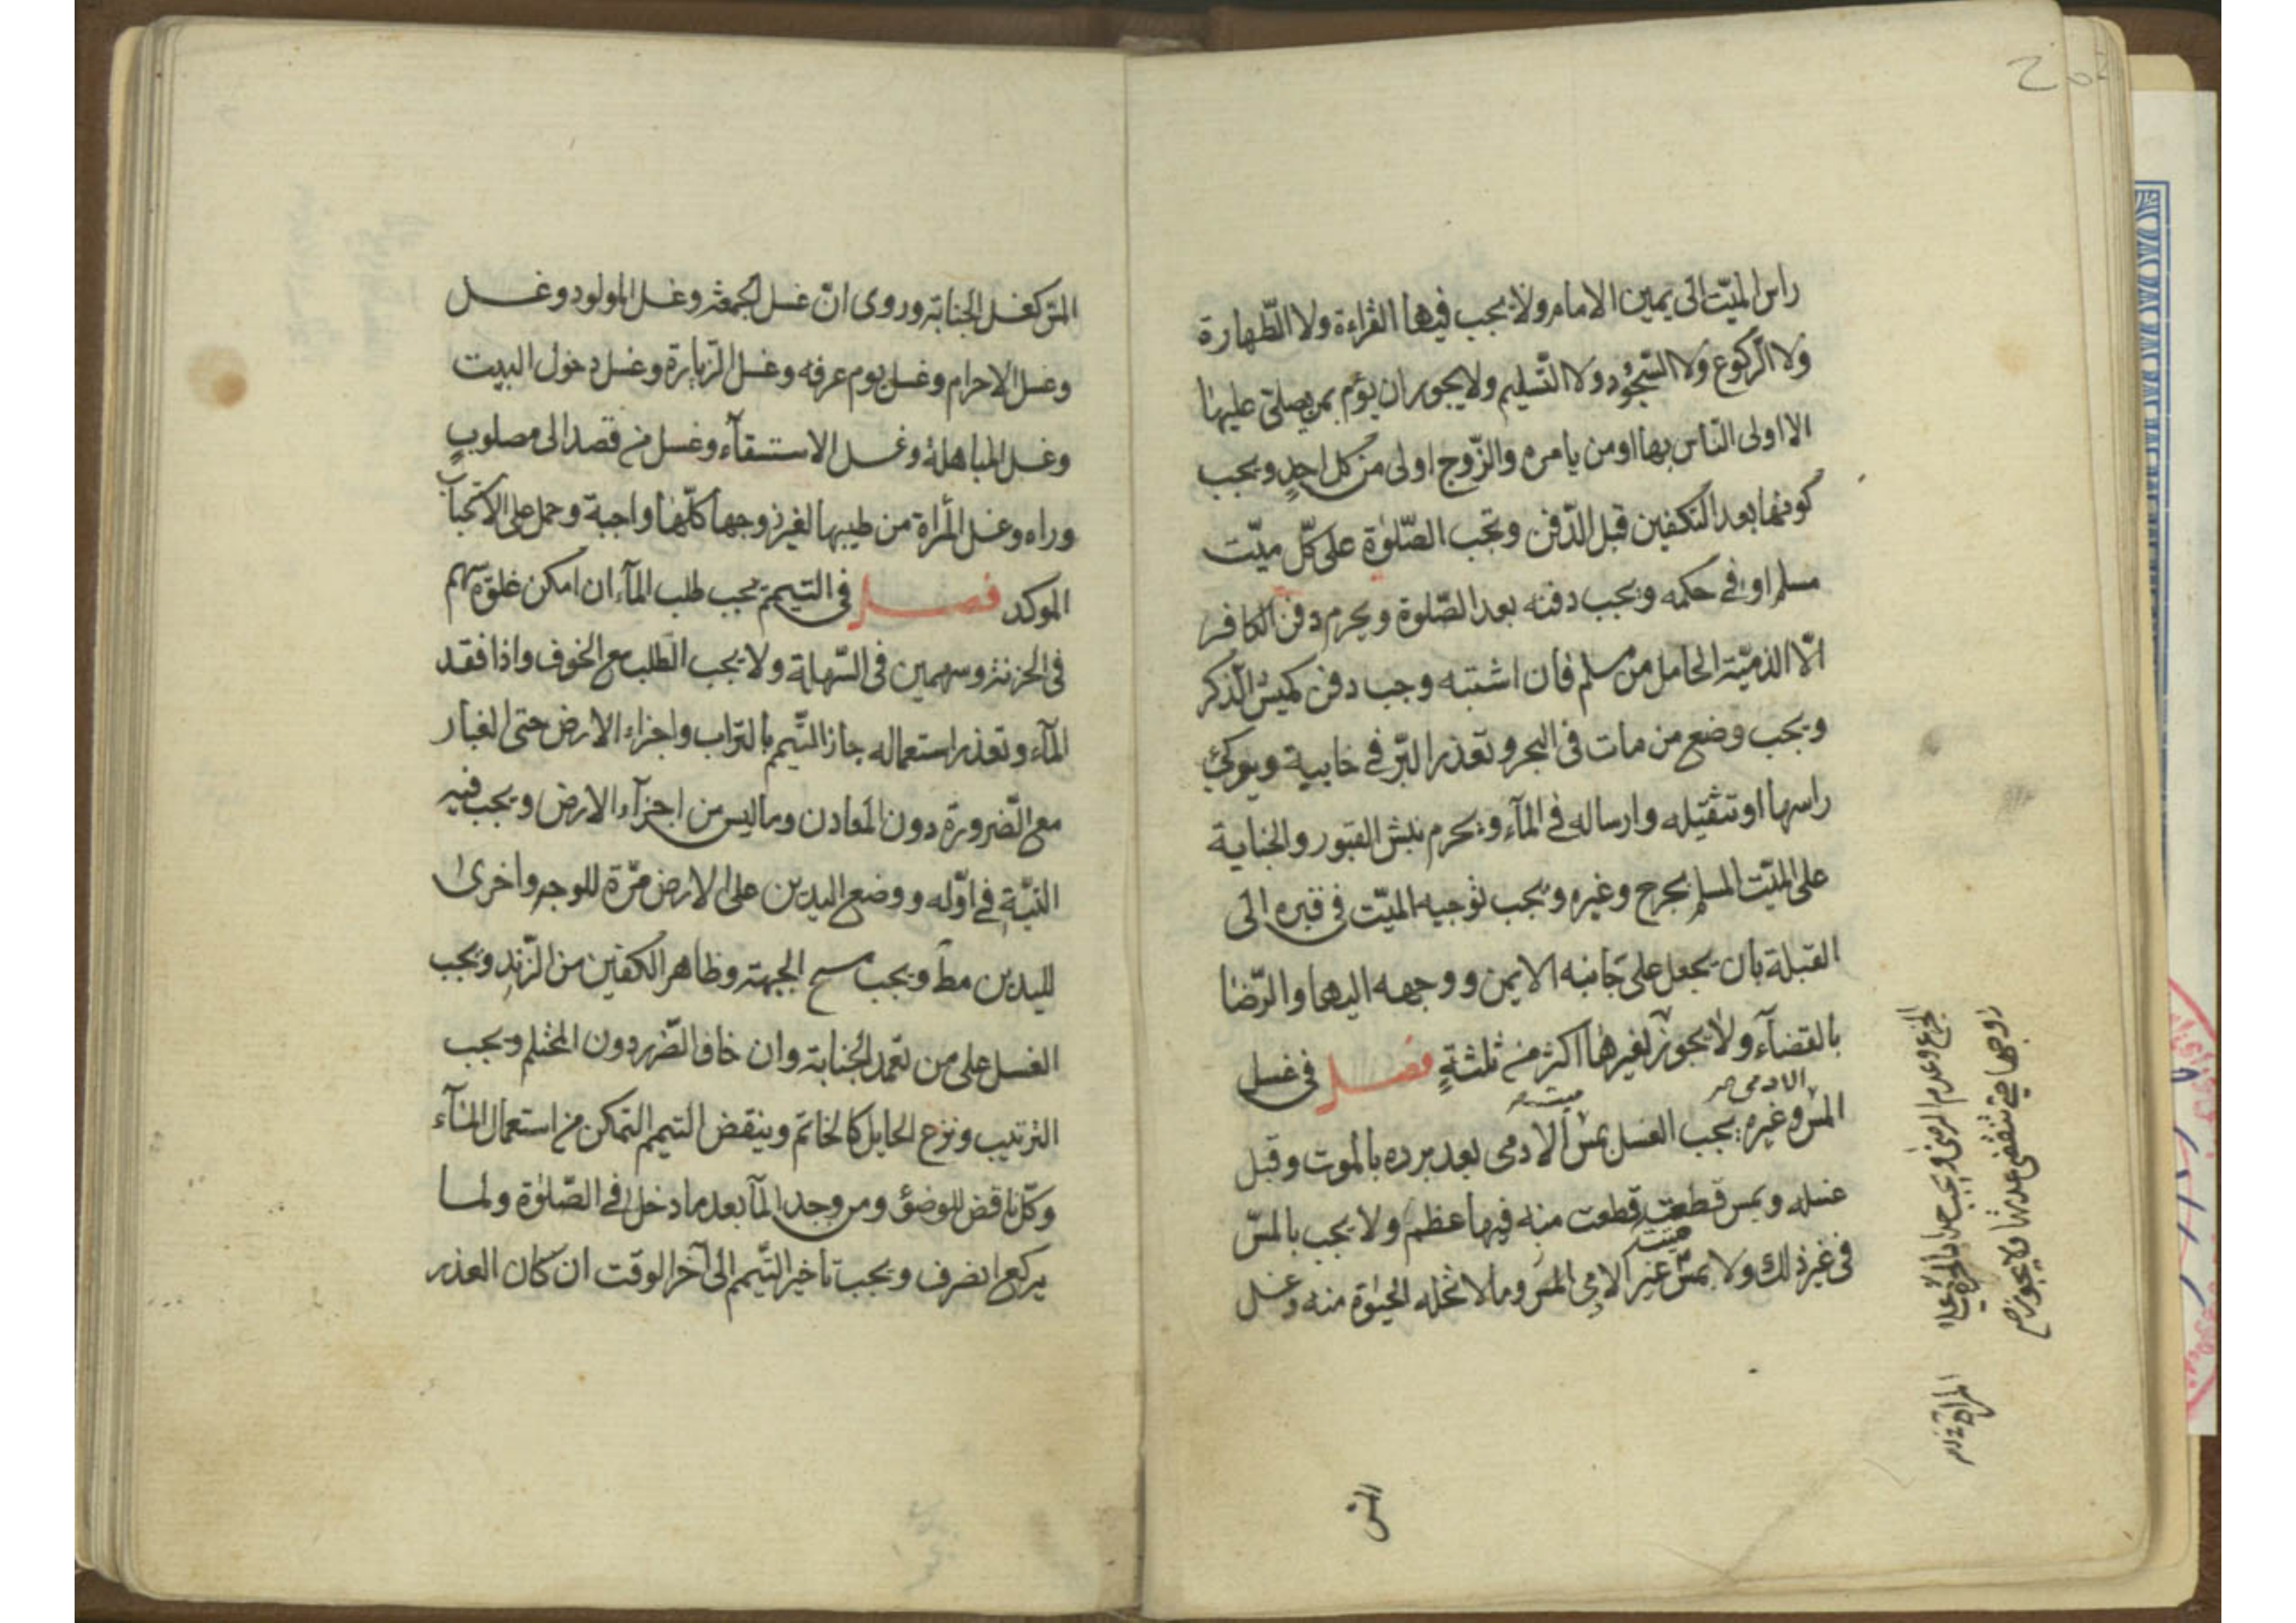 راس الميّت الى يمين الامام ولا يجب فيها القراءة ولا الطّهارة
ولا الرّكوع ولا السّجود ولا التّسليم ولا يجوز ان يؤم بمن يصلّى عليها
الا اولى النّاس بها او من يامره والزّوج اولى من كل احدٍ ويجب
كونها بعد التكفين قبل الدّفن وتجب الصّلوة على كلّ ميّت
مسلم او فى حكمه ويجب دفنه بعد الصّلوة ويحرم دفن الكافر
الّا الذميّة الحامل من مسلم فان اشتبه وجب دفن كميش الذّكر
ويجب وضع من مات فى البحر وتعذر البّر فى خابية ويوكئ
راسها او تثقيله وارساله فى المآء ويحرم نبش القبور والجناية
على الميّت المسلم بجرح وغيره ويجب توجيه الميّت فى قبره الى
القبلة بان يجعل على جانبه الايمن ووجهه اليها والرّضا
بالقضآء ولا يجوز لغيرها اكثر من ثلثةٍ فصل فى غسل
المسّ وغيره يجب الغسل بمسّ الادمى بعد برده بالموت وقبل
غسله وبمس قطعة قطعت منه فيها عظم ولا يجب بالمسّ
فى غير ذلك ولا بمسّ غير الادمى الميت وما لا تحله الحيوة منه وغسل
المسّ
الجزع وعدم الرضى ويجب حداد المراة على
زوجها حتى تنقضى عدتها ولا يجوز
المسّ كغسل الجنابة وروى انّ غسل الجمعة وغسل المولود وغسل
وغسل الاحرام وغسل يوم عرفه وغسل الزّيارة وغسل دخول البيت
وغسل المباهلة وغسل الاستسقآء وغسل من قصد الى مصلوبٍ
وراه وغسل المراة من طيبها لغير زوجها كلّها واجبة وحمل على الاستحباب
الموكد فصل فى التيمم يجب طلب المآء ان امكن غلوة سهم
فى الحزنة وسهمين فى السّهلة ولا يجب الطّلب مع الخوف واذا فقد
المآء وتعذر استعماله جاز التّيمم بالتراب واجزاء الارض حتى الغبار
مع الضّرورة دون المعادن وما ليس من اجزآء الارض ويجب فيه
النيّة فى اوّله ووضع اليدين على الارض مرّة للوجه واخرى
لليدين مط ويجب مسح الجبهة وظاهر الكفين من الزّند ويجب
الغسل على من تعمد الجنابة وان خاف الضّرر دون المحتلم ويجب
الترتيب ونزع الحايل كالخاتم وينقض التيمم التمكن من استعمال المآء
وكل ناقض للوضوء ومن وجد المآ بعد ما دخل فى الصّلوة ولما
يركع انصرف ويجب تاخير التّيمم الى آخر الوقت ان كان العذر